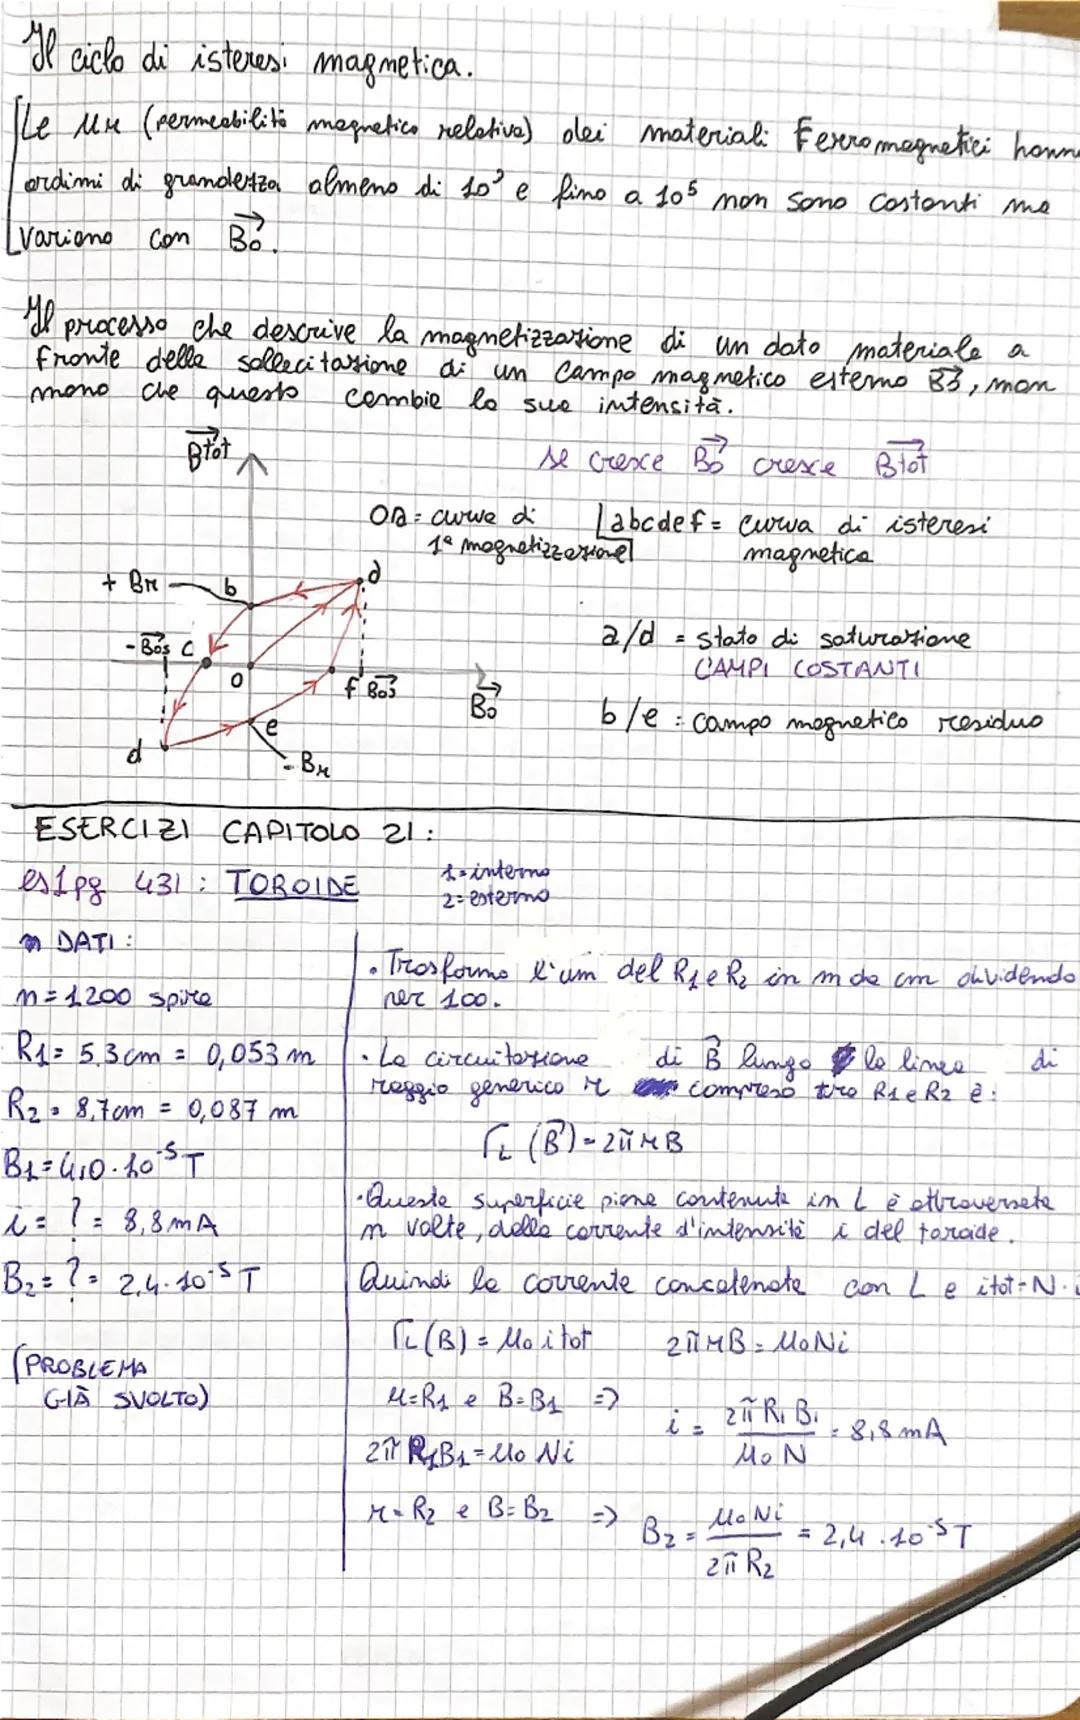 Il ciclo di isteresi magnetica.
Le μr (permeabilità magnetica relativa) dei materiali Ferromagnetici hanno
ordini di grandezza almeno di 10³ e fino a 10⁵ non sono costanti ma
variano con B₀.
Il processo che descrive la magnetizzazione di un dato materiale a
fronte della sollecitazione di un campo magnetico esterno B⃗, man
mano che questo cambia la sua intensità.
Btot
se cresce B₀ cresce Btot
OA = curva di
1ª magnetizzazione
abcdef = curva di isteresi
magnetica
+ Br
b
d
- B₀s
c
O
f
B₀s
B₀
d
e
- Br
a/d = stato di saturazione
CAMPI COSTANTI
b/e : campo magnetico residuo
ESERCIZI CAPITOLO 21:
es1pg 431 : TOROIDE
1= interno
2= esterno
DATI:
n = 1200 spire
R1 = 5,3 cm = 0,053 m
R2 = 8,7 cm = 0,087 m
B1 = 4,0 · 10⁻⁵ T
i = ? = 8,8 mA
B2 = ? = 2,4 · 10⁻⁵ T
(PROBLEMA
GIÀ SVOLTO)
• Trasformo l'um del R1 e R2 in m da cm dividendo
per 100.
• La circuitazione di B⃗ lungo la linea di
raggio generico r compreso tra R1 e R2 è:
Γ_L (B⃗) = 2πrB
• Questa superficie piana contenuta in L è attraversata
n volte, dalla corrente d'intensità i del toroide.
Quindi la corrente concatenata con L e itot = N · i
Γ_L (B) = μ₀ itot 2πrB = μ₀Ni
r = R1 e B = B1 =>
2πR1B1 = μ₀ Ni
i = 2πR1B1 / μ₀N = 8,8 mA
r = R2 e B = B2 => B2 = μ₀Ni / 2πR2 = 2,4 · 10⁻⁵ T